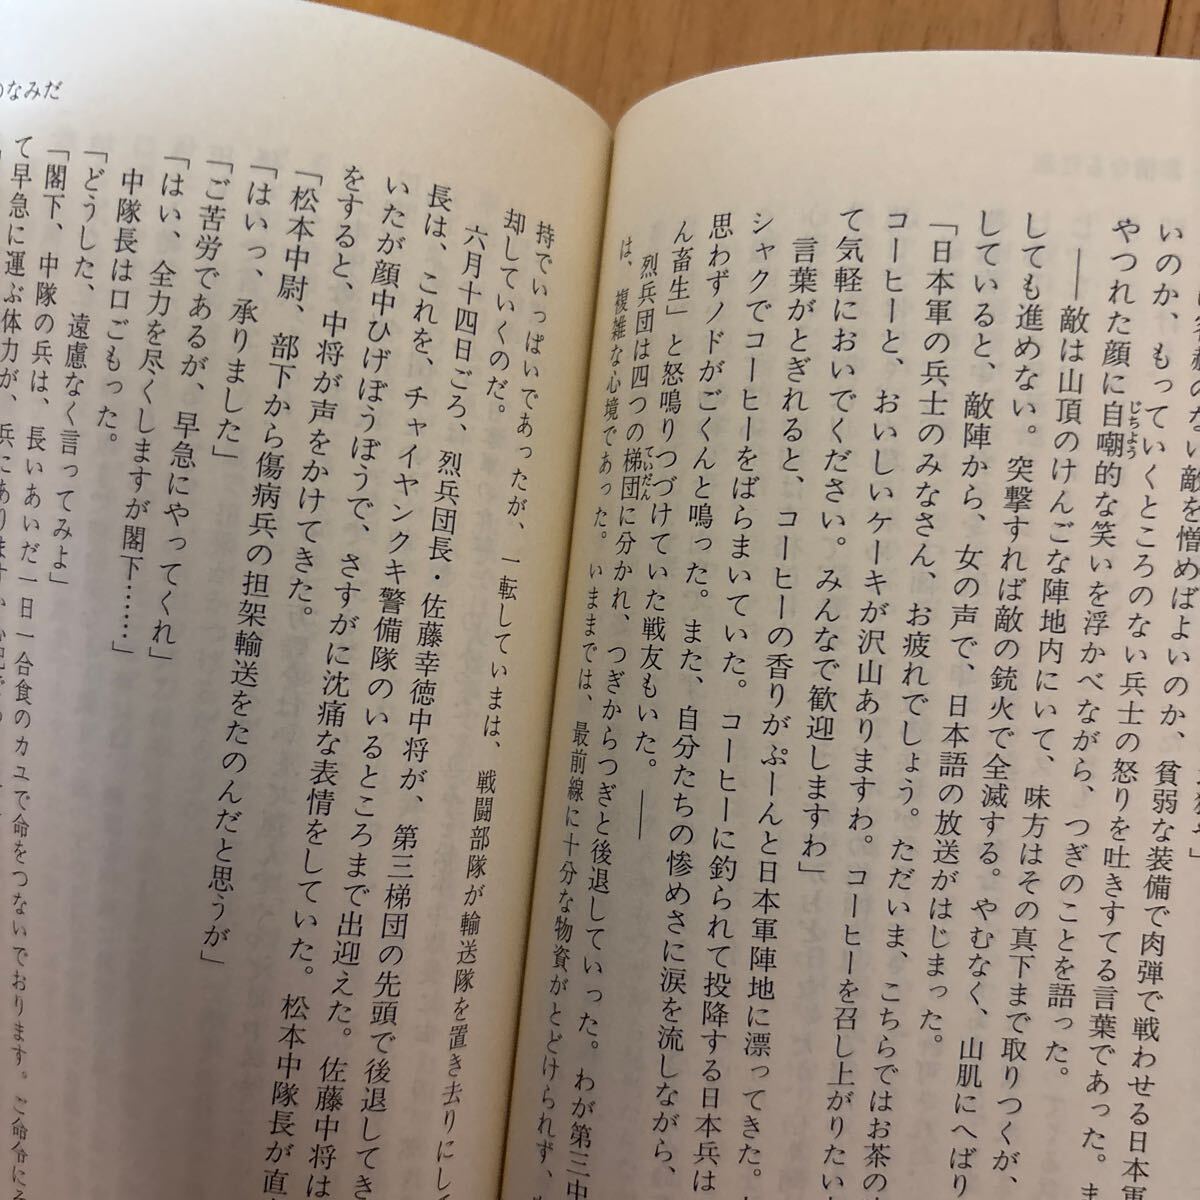 いのか、もっていくところのない兵士の怒りを吐きすてる言葉であった。ま
やつれた顔に自嘲的な笑いを浮かべながら、つぎのことを語った。
じちょう
――敵は山頂のけんごな陣地内にいて、味方はその真下まで取りつくが、
しても進めない。突撃すれば敵の銃火で全滅する。やむなく、山肌にへばり
していると、敵陣から、女の声で、日本語の放送がはじまった。
「日本軍の兵士のみなさん、お疲れでしょう。ただいま、こちらではお茶の
コーヒーと、おいしいケーキが沢山ありますわ。コーヒーを召し上がりたい
て気軽においでください。みんなで歓迎しますわ」
言葉がとぎれると、コーヒーの香りがぷーんと日本軍陣地に漂ってきた。
シャクでコーヒーをばらまいていた。コーヒーに釣られて投降する日本兵は
思わずノドがごくんと鳴った。また、自分たちの惨めさに涙を流しながら、
ん畜生」と怒鳴りつづけていた戦友もいた。――
烈兵団は四つの梯団に分かれ、つぎからつぎと後退していった。わが第三中
ていだん
は、複雑な心境であった。いままでは、最前線に十分な物資がとどけられず、
のなみだ
持でいっぱいであったが、一転していまは、戦闘部隊が輸送隊を置き去りにし
却していくのだ。
六月十四日ごろ、烈兵団長・佐藤幸徳中将が、第三梯団の先頭で後退してき
長は、これを、チャイヤンクキ警備隊のいるところまで出迎えた。佐藤中将は
いたが顔中ひげぼうぼうで、さすがに沈痛な表情をしていた。松本中隊長が直
をすると、中将が声をかけてきた。
「松本中尉、部下から傷病兵の担架輸送をたのんだと思うが」
「はいっ、承りました」
「ご苦労であるが、早急にやってくれ」
「はい、全力を尽くしますが閣下……」
中隊長は口ごもった。
「どうした、遠慮なく言ってみよ」
「閣下、中隊の兵は、長いあいだ一日一合食のカユで命をつないでおります。ご命令に
て早急に運ぶ体力が、兵にありますか